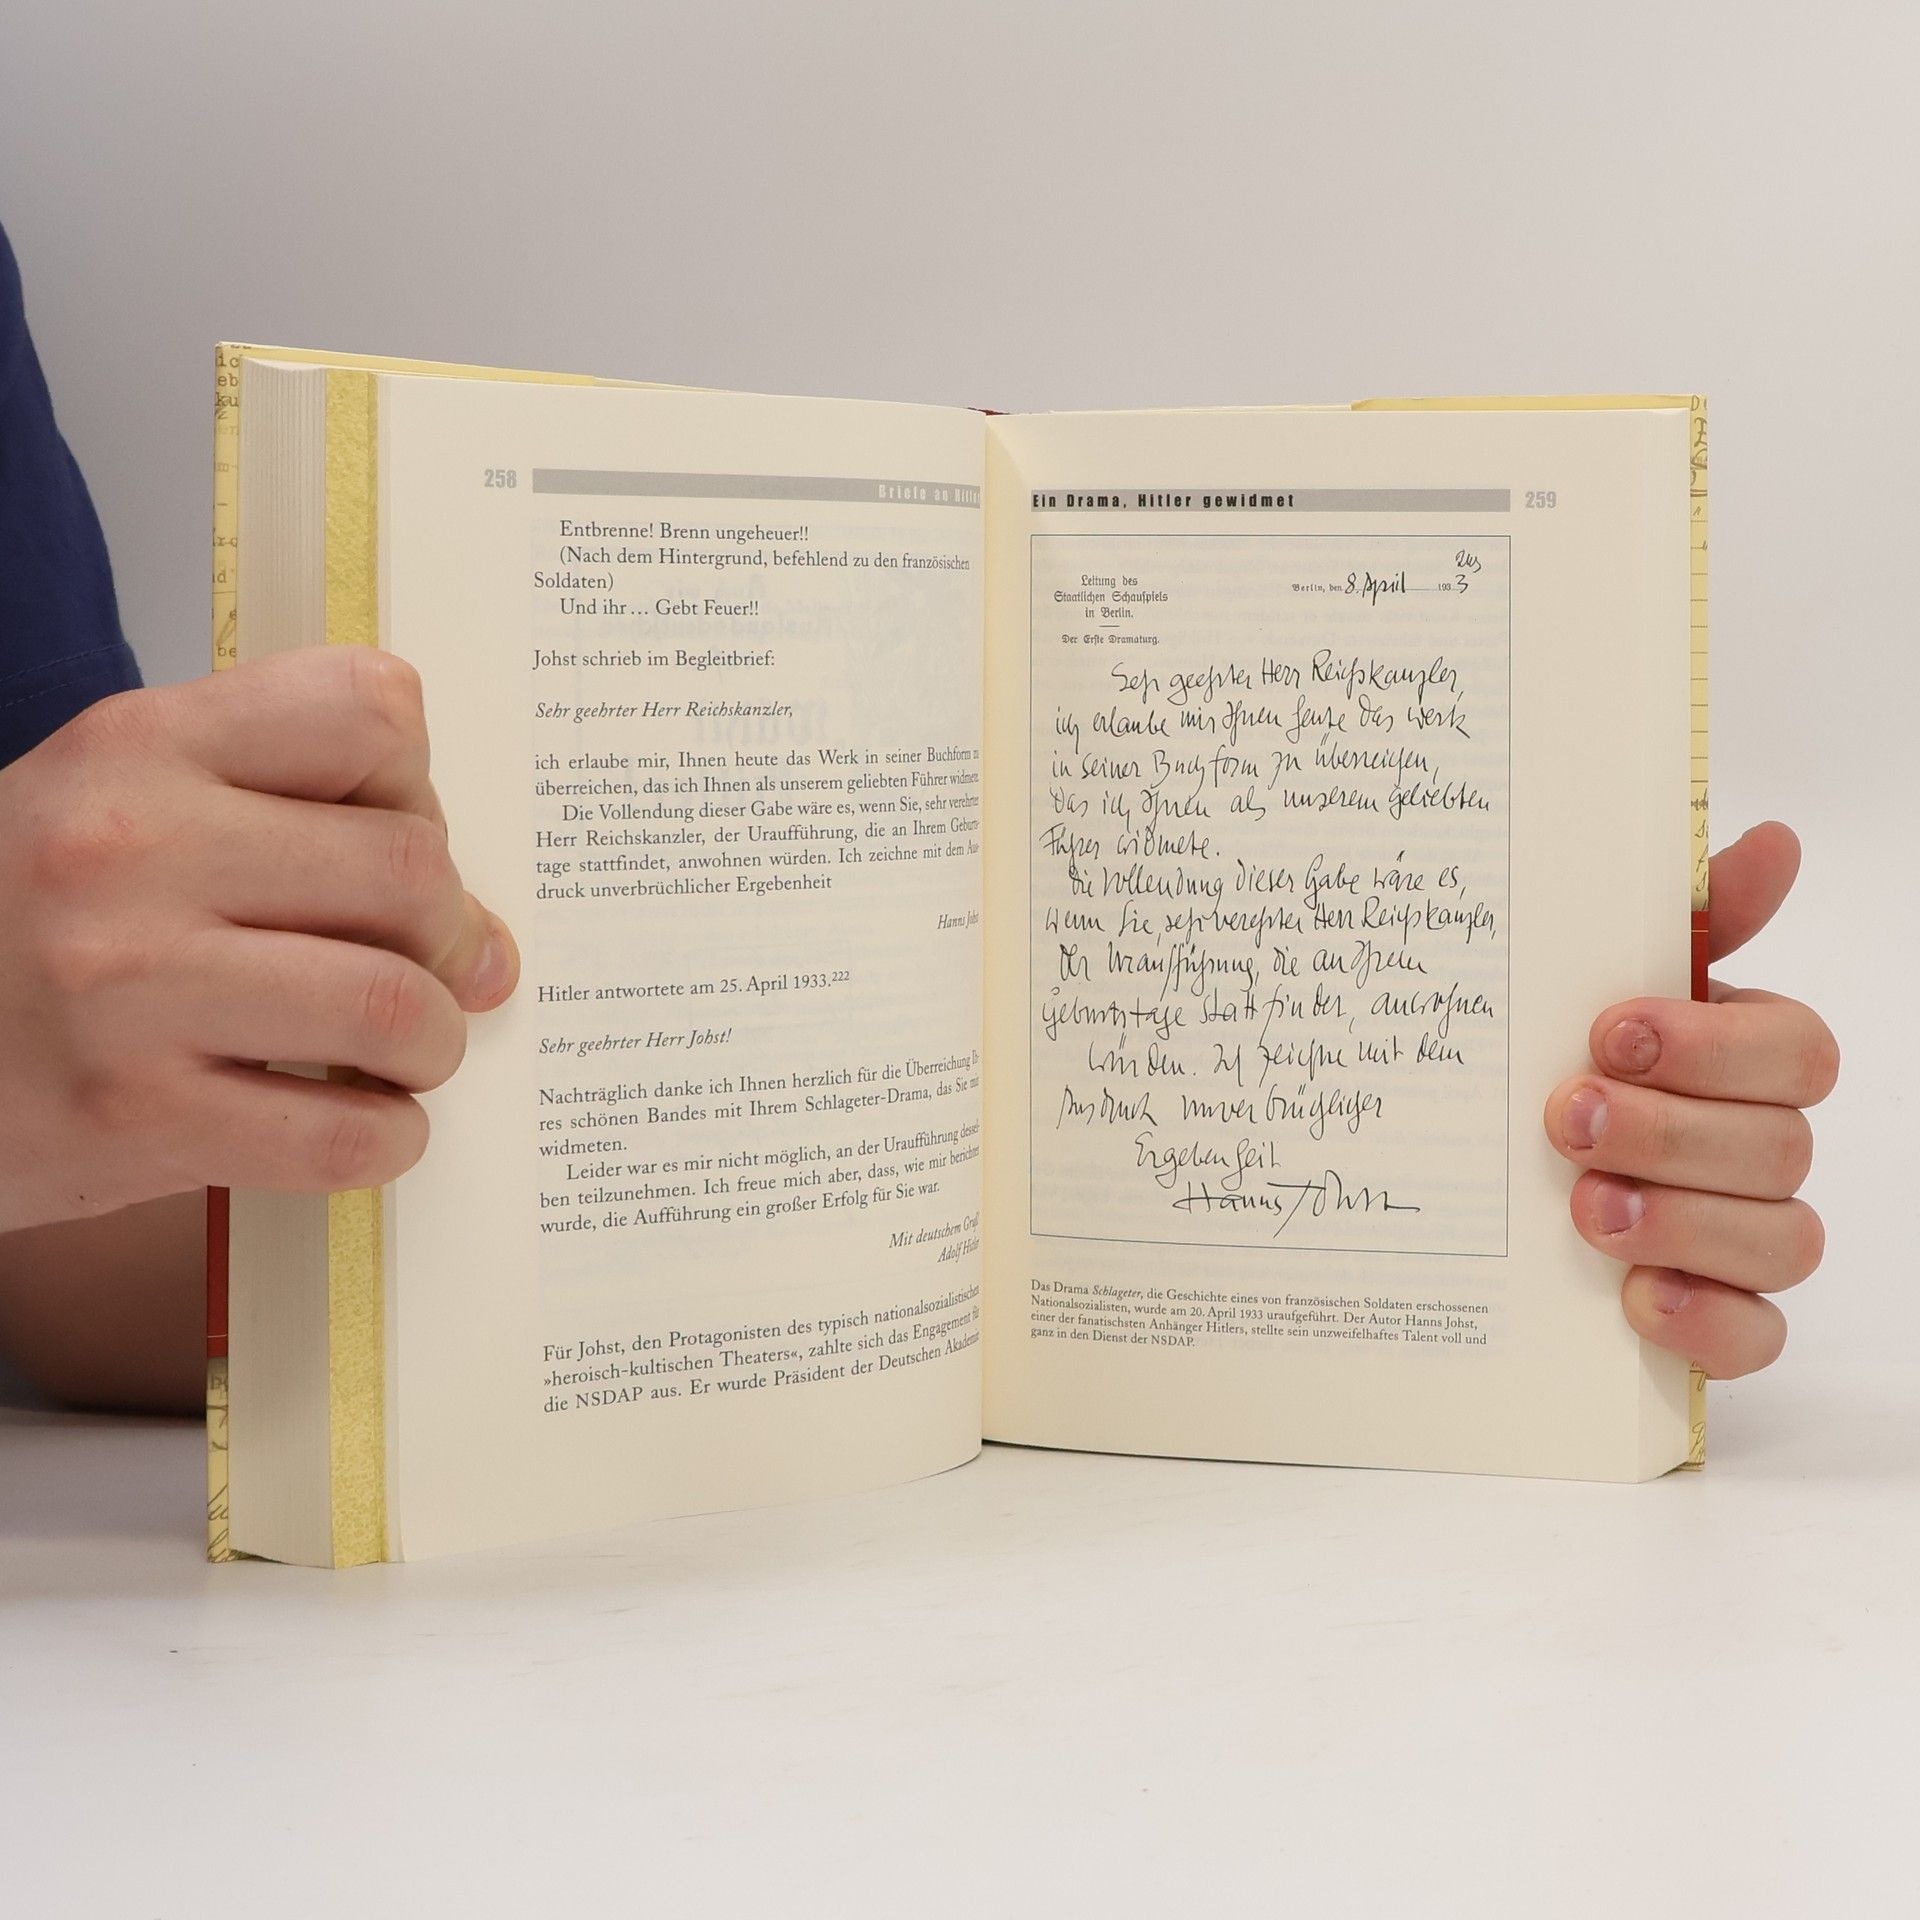 258
Briefe an Hitler
Entbrenne! Brenn ungeheuer!!
(Nach dem Hintergrund, befehlend zu den französischen
Soldaten)
Und ihr… Gebt Feuer!!
Johst schrieb im Begleitbrief:
Sehr geehrter Herr Reichskanzler,
ich erlaube mir, Ihnen heute das Werk in seiner Buchform zu
überreichen, das ich Ihnen als unserem geliebten Führer widmete.
Die Vollendung dieser Gabe wäre es, wenn Sie, sehr verehrter
Herr Reichskanzler, der Uraufführung, die an Ihrem Geburts-
tage stattfindet, anwohnen würden. Ich zeichne mit dem Aus-
druck unverbrüchlicher Ergebenheit
Hanns Johst
Hitler antwortete am 25. April 1933.²²²
Sehr geehrter Herr Johst!
Nachträglich danke ich Ihnen herzlich für die Überreichung Ih-
res schönen Bandes mit Ihrem Schlageter-Drama, das Sie mir
widmeten.
Leider war es mir nicht möglich, an der Uraufführung dessel-
ben teilzunehmen. Ich freue mich aber, dass, wie mir berichtet
wurde, die Aufführung ein großer Erfolg für Sie war.
Mit deutschem Gruß
Adolf Hitler
Für Johst, den Protagonisten des typisch nationalsozialistischen
»heroisch-kultischen Theaters«, zahlte sich das Engagement für
die NSDAP aus. Er wurde Präsident der Deutschen Akademie
Ein Drama, Hitler gewidmet
259
Leitung des
Staatlichen Schauspiels
in Berlin.
Der Erste Dramaturg.
Berlin, den 8. April 1933
Sehr geehrter Herr Reichskanzler,
ich erlaube mir Ihnen heute das Werk
in seiner Buchform zu überreichen,
das ich Ihnen als unserem geliebten
Führer widmete.
Die Vollendung dieser Gabe wäre es,
wenn Sie, sehr verehrter Herr Reichskanzler,
der Uraufführung, die an Ihrem
Geburtstage stattfindet, anwohnen
würden. Ich zeichne mit dem
Ausdruck unverbrüchlicher
Ergebenheit
Hanns Johst
Das Drama Schlageter, die Geschichte eines von französischen Soldaten erschossenen
Nationalsozialisten, wurde am 20. April 1933 uraufgeführt. Der Autor Hanns Johst,
einer der fanatischsten Anhänger Hitlers, stellte sein unzweifelhaftes Talent voll und
ganz in den Dienst der NSDAP.